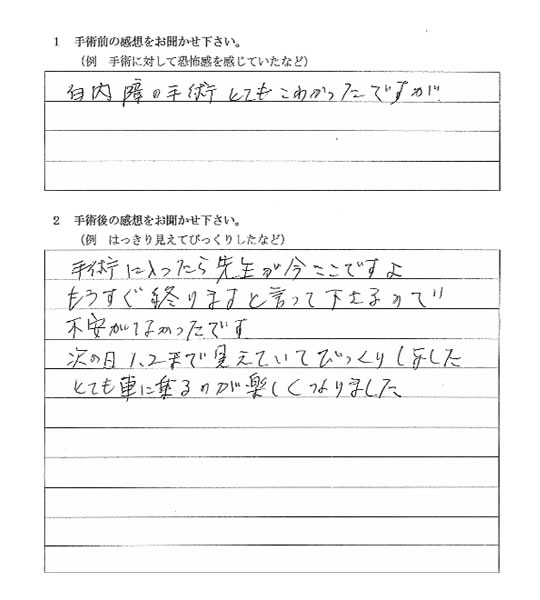 1 手術前の感想をお聞かせ下さい。
（例 手術に対して恐怖感を感じていたなど）
白内障の手術とてもこわかったですが
2 手術後の感想をお聞かせ下さい。
（例 はっきり見えてびっくりしたなど）
手術に入ったら先生が今ここですよ
もうすぐ終りますと言って下さるので
不安がなかったです
次の日1.2まで見えていてびっくりしました
とても車に乗るのが楽しくなりました